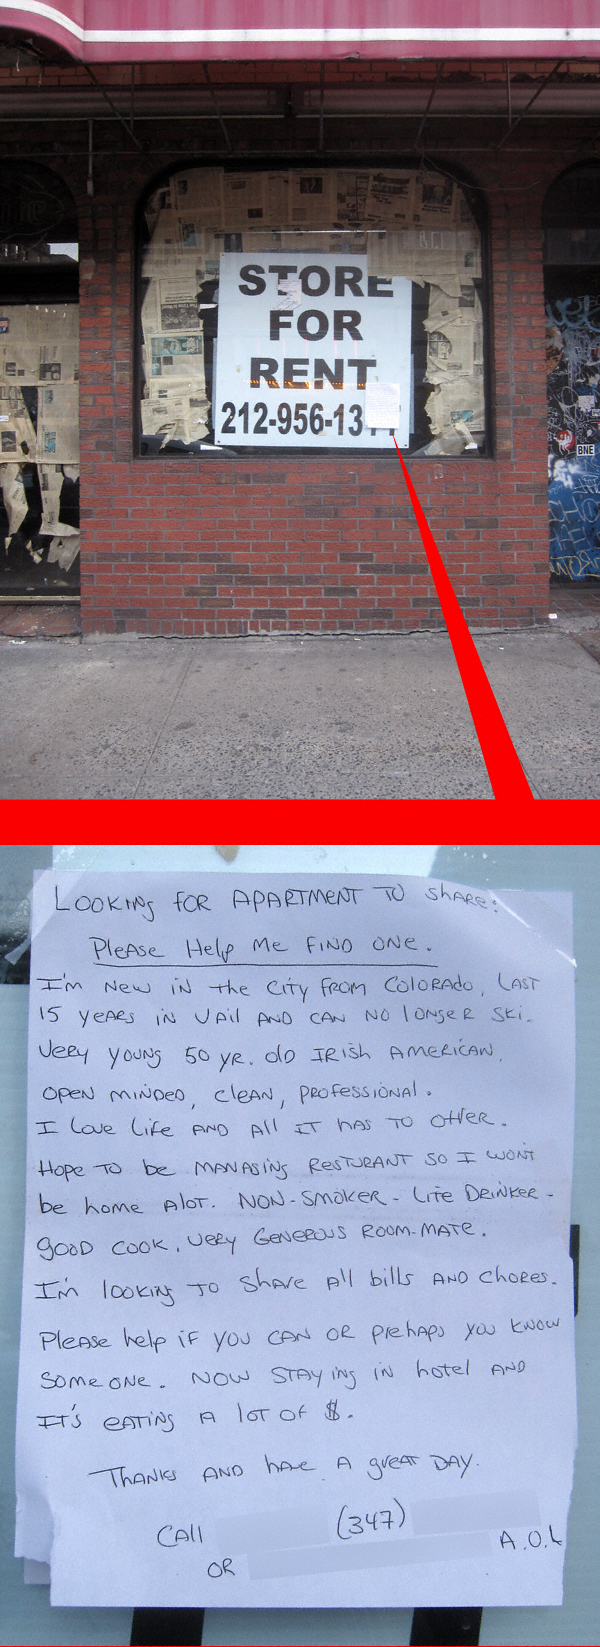 STORE
FOR
RENT
212-956-13
BNE
LOOKING FOR APARTMENT TO SHARE:
Please Help Me FIND ONE.
I'm New iN the City FROM COlORAdo, LAST
15 yEARS IN VAil AND CAN NO lONgER Ski.
Very young 50 yR. old IRish AMERICAN,
OPEN MINDED, cleAN, PROFESSIONAl.
I Love Life AND All IT hAS TO OffeR.
Hope TO be MANAGING RESTURANT SO I WON'T
be home Alot. NON-SMOKER - LITE DRINKER -
good COOK, VERY GENEROUS ROOM-MATE.
I'm lOOKINg TO ShARE All bills AND ChORES.
PleASE help iF YOU CAN OR PREhAPS yOU KNOW
SOMEONE. NOW STAYING IN hotel AND
IT'S EATINg A lOT OF $.
THANKS AND hAVE A gREAT DAY.
CAll (347)
OR A.O.L